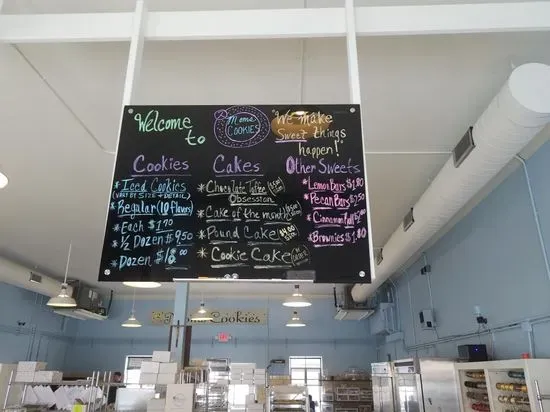 Welcome to
Moms
COOKIES
"We make
Sweet things
happen!"
Cookies
* Iced Cookies
(VARY BY SIZE + DETAIL)
* Regular (10 flavors)
* Each $1.70
* ½ Dozen $9.50
* Dozen $18.00
Cakes
* Chocolate Toffee
Obsession
* Cake of the month
* Pound Cake
* Cookie Cake
Other Sweets
* Lemon Bars $1.80
* Pecan Bars
* Cinnamon Roll
* Brownies $1.80
Moms Cookies
EXIT